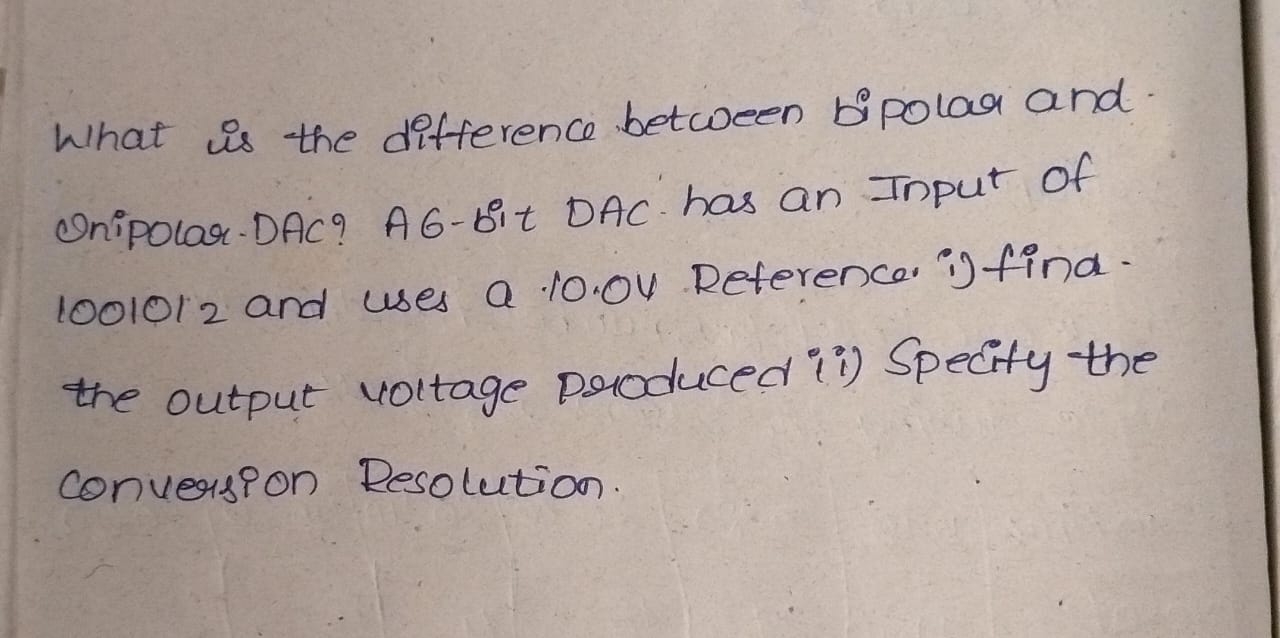 What is the difference between bipolar and
Unipolar DAC? A 6-Bit DAC has an Input of
1001012 and uses a 10.0V Reference. i) find
the output voltage produced ii) Specify the
conversion Resolution.